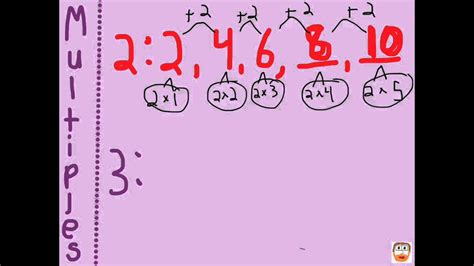 Multiples
+2 +2 +2 +2
2: 2, 4, 6, 8, 10
2x1 2x2 2x3 2x4 2x5
3: